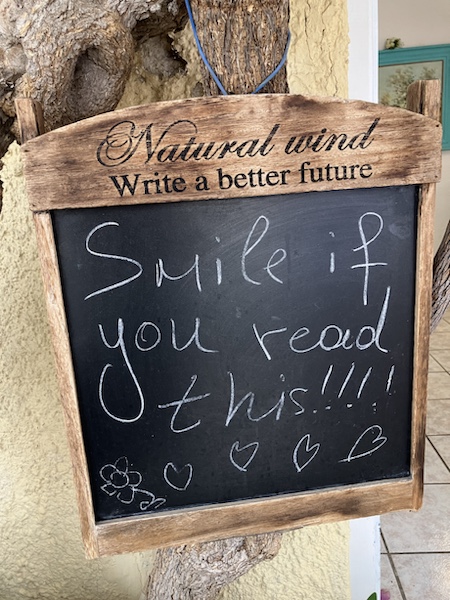 Natural wind
Write a better future
Smile if
you read
this!!!!